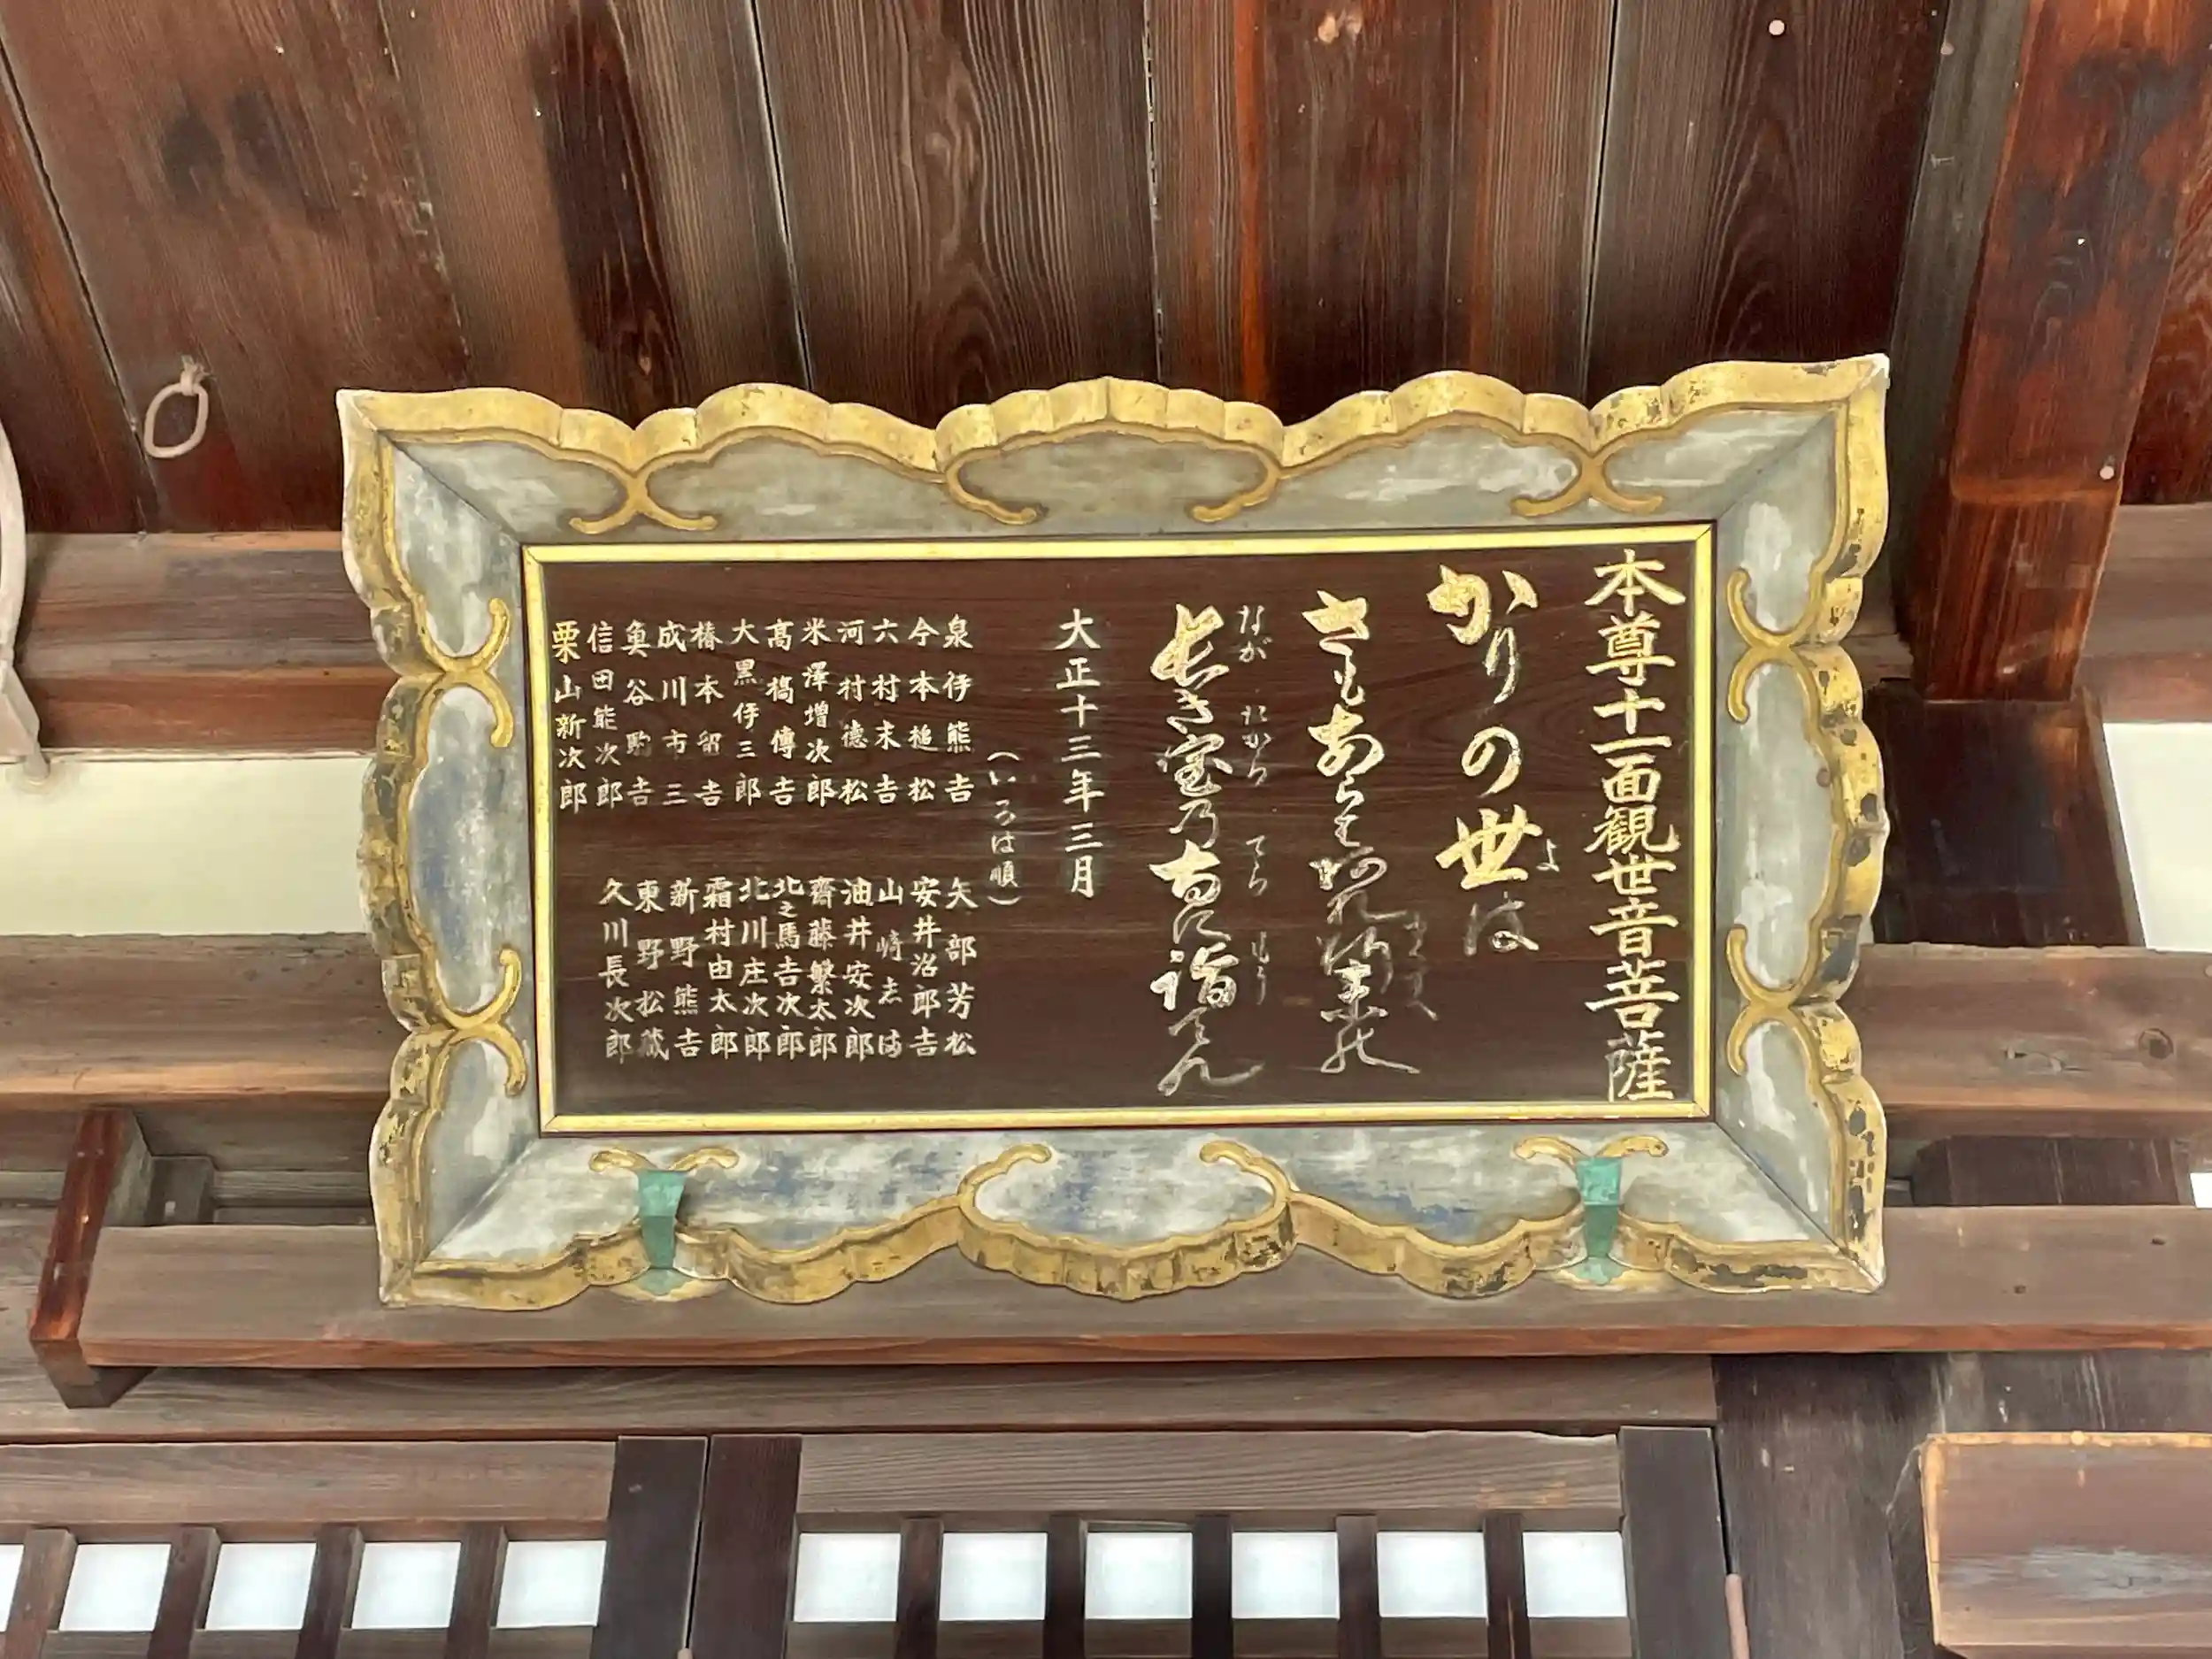 本尊十一面観世音菩薩
かりの世は
よ
さもあらばあれ
長き宝乃寺に詣でん
ながたからてらもう
大正十三年三月
(いろは順)
泉伊熊吉
今本槌松
六村末吉
河村德松
米澤増次郎
髙橋傳吉
大黒伊三郎
椿本留吉
成川市三
奥谷駒吉
信田能次郎
栗山新次郎
矢部芳松
安井沼郎吉
山﨑志満
油井安次郎
齋藤繁太郎
北之馬吉次郎
北川庄次郎
霜村由太郎
新野熊吉
東野松蔵
久川長次郎